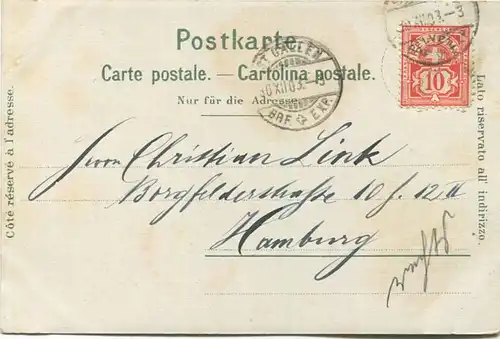 Postkarte.
Carte postale. — Cartolina postale.
Nur für die Adresse.
ST. GALLEN
30 XII 03.-9
BRF. EXP.
10
Côté réservé à l'adresse.
Lato riservato all' indirizzo.
Herrn Christian Link
Borgfelderstraße 10 f. 12 II
Hamburg